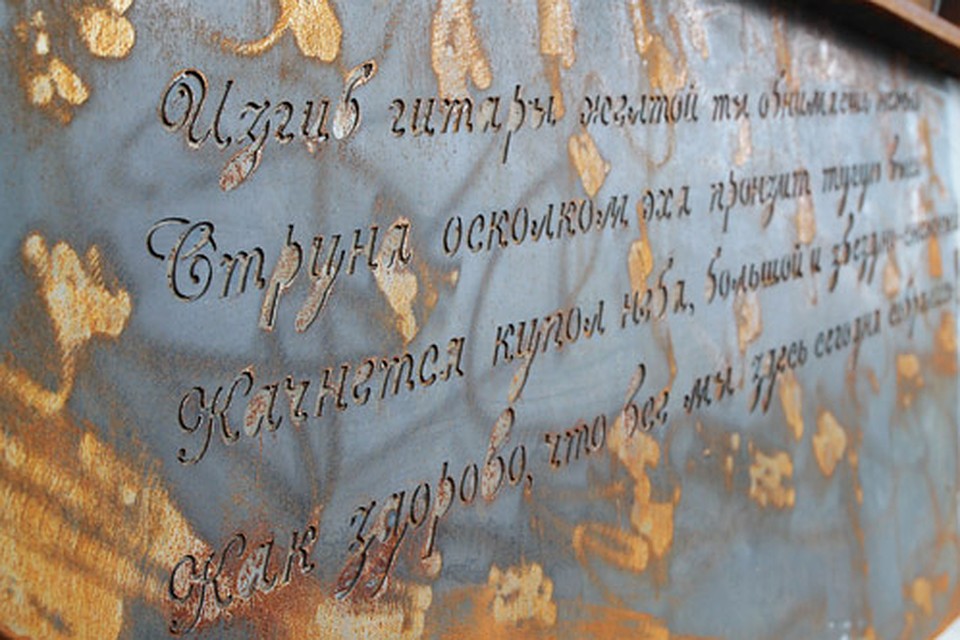 Изгиб гитары желтой ты обнимаешь нежно
Струна осколком эха пронзит тугую высь
Качнется купол неба, большой и звездно-снежный
Как здорово, что все мы здесь сегодня собрались